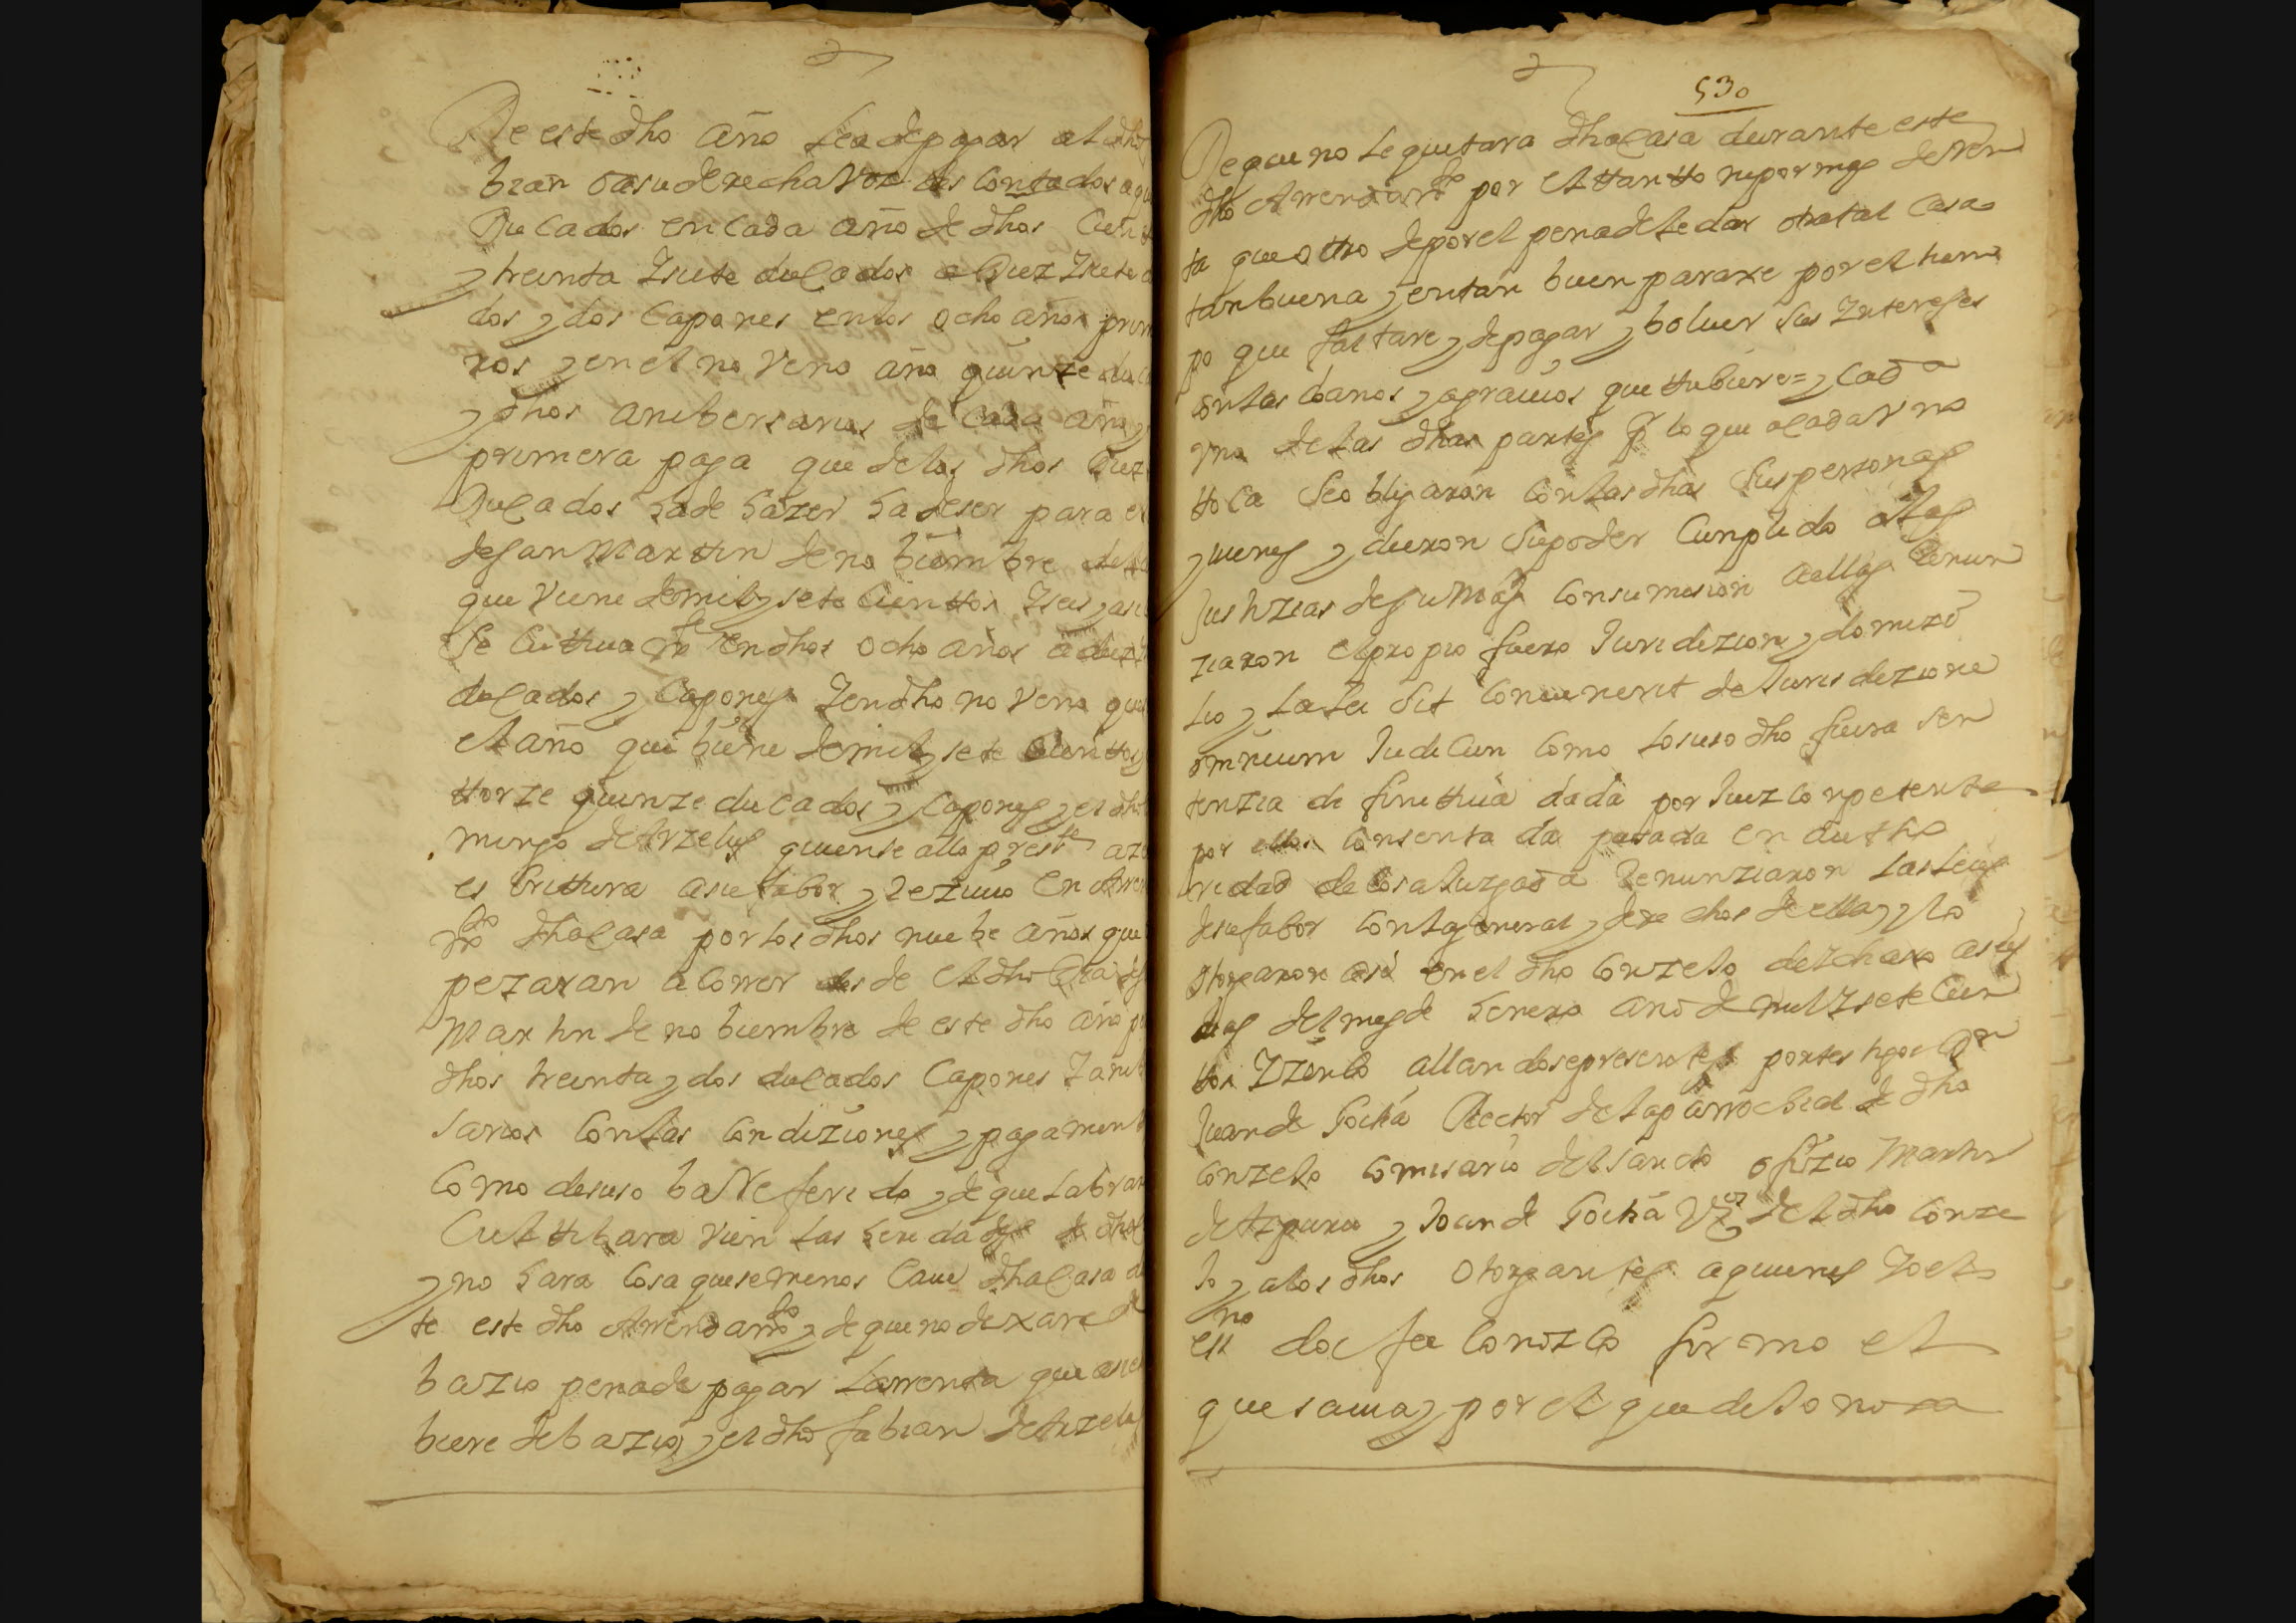 De este dho año sea de pagar al dho
bian o a su derecha voz des contados a
Ducados en cada año de dhos Cien
y treinta y siete ducados a Diez y siete
dos y dos Capones en los ocho años prim
ros y en el no veno año quinze du
y dhos anibersarios de cada año y
primera paga que de los dhos Diez
Ducados ha de hazer ha de ser para e
de san Martin de no biembre de
que viene de mil y sete Cienttos y seis y asi
en dhos ocho años a diez
ducados y Capones y en dho no veno
el año que biene de mil y sete Cienttos y
ttorze quinze ducados y Capones y el dho
mingo de Arzelus quien se alla preste a
es Crittura a su fabor y rezivio en Arren
do dha Casa por los dhos nuebe años que
pezaran a Correr des de el dho Dia de
Martin de no biembre de este dho año p
dhos treinta y dos ducados Capones y anib
sarios Con las Condiziones y pagament
Como de suso ba Referido y de que labrar
Culttibara vien las heredades de dha
y no hara Cosa que se menos Cave dha Casa
te este dho Arrendamto y de que no dexara
bazio pena de pagar la rrenta que
biere de bazio y el dho fabian de Arzelus
530
De que no le quitara dha Casa durante este
dho Arrendamto por el ttantto ni por mas de Ren
ta que ottro de por el pena de le dar otra tal Casa
tan buena y en tan buen paraxe por el tiem
po que faltare y de pagar y bolver sus Intereses
con los daños y agravios que ttubiere = y Cada
vna de las dhas partes p lo que a Cada vno
ttoca se obligaron Con las dhas sus personas
y vienes y dieron su poder Cunplido a las
Justizias de su Mag Con sumision a ellas Renun
ziaron el propio fuero Juridizion y domizi
lio y la lei sit Convenerit de Jurisdizione
omnium Judicun Como lo suso dho fuera sen
tenzia di finittiva dada por Juez Conpetente
por ellos Consentida pasada en autho
ridad de Cosa Juzgada Renunziaron las leies
de su fabor Con la general y derechos de ella y lo
otorgaron asi en el dho Conzejo de Ichaso a seis
dias del mes de henero año de mil y sete Cien
ttos y zinco allandose presentes por testigos Dn
Juan de Goitia Rector de la parrochial de dho
Conzejo Comisario del sancto ofizio Martin
de Azpiazu y Joan de Goitia Vezos del dho Conze
jo y a los dhos otorgantes a quienes Yo el
essno doi fee Conozco firmo el
que savia y por el que dijo no sa